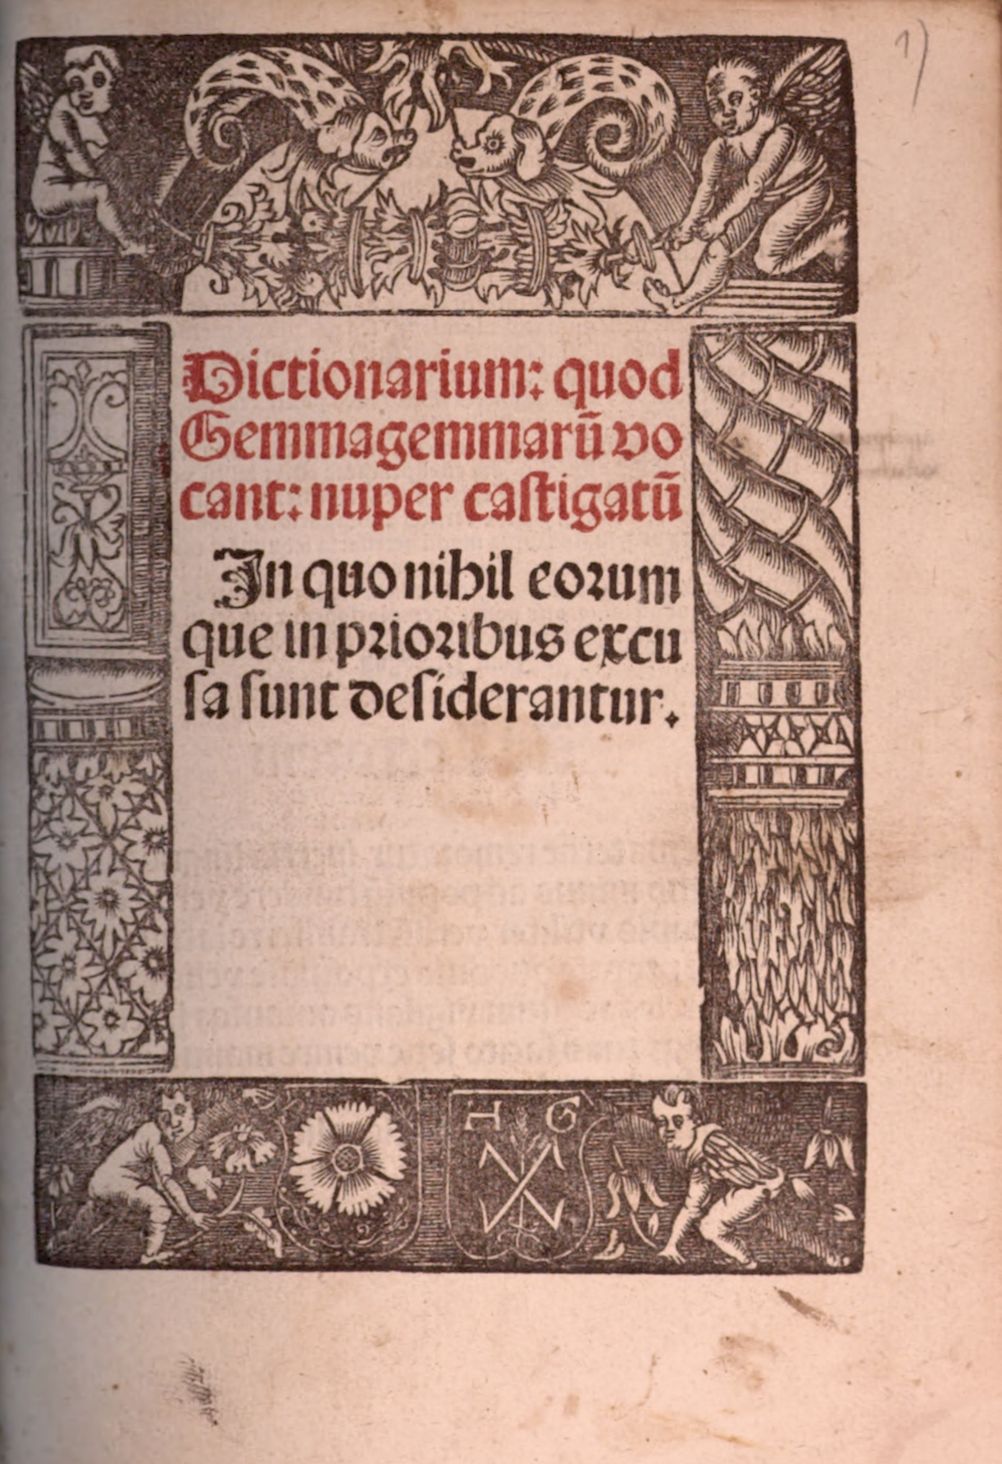 1)
Dictionarium: quod
Gemmagemmarū vo
cant: nuper caſtigatū
In quo nihil eorum
que in prioribus excu
ſa ſunt deſiderantur.
H G